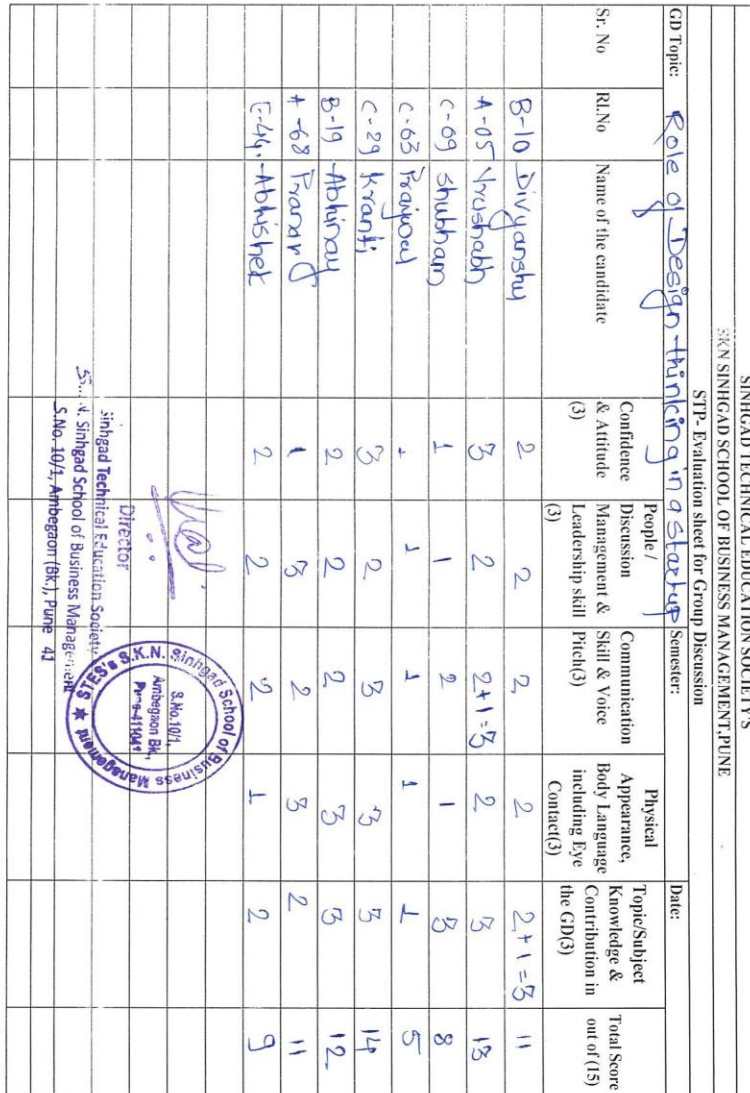 SINHGAD TECHNICAL EDUCATION SOCIETY'S
SKN SINHGAD SCHOOL OF BUSINESS MANAGEMENT,PUNE
STP- Evaluation sheet for Group Discussion
GD Topic: Role of Design thinking in a Startup Semester: Date:
Sr. No Rl.No Name of the candidate Confidence & Attitude (3) People / Discussion Management & Leadership skill (3) Communication Skill & Voice Pitch(3) Physical Appearance, Body Language including Eye Contact(3) Topic/Subject Knowledge & Contribution in the GD(3) Total Score out of (15)
B-10 Divyanshu 2 2 2 2 2+1=3 11
A-05 Vrushabh 3 2 2+1=3 2 3 13
C-09 Shubham 1 1 2 1 3 8
C-63 Prajwal 1 1 1 1 1 5
C-29 Kranti 3 2 3 3 3 14
B-19 Abhinay 2 2 2 3 3 12
A-68 Pranav 1 3 2 3 2 11
E-44. Abhishek 2 2 2 1 2 9
Director
Sinhgad Technical Education Society
Sinhgad School of Business Management
S.No. 10/1, Ambegaon (Bk.), Pune 41
STES's S.K.N. Sinhgad School of Business Management
S.No.10/1,
Ambegaon Bk,
Pune-411041